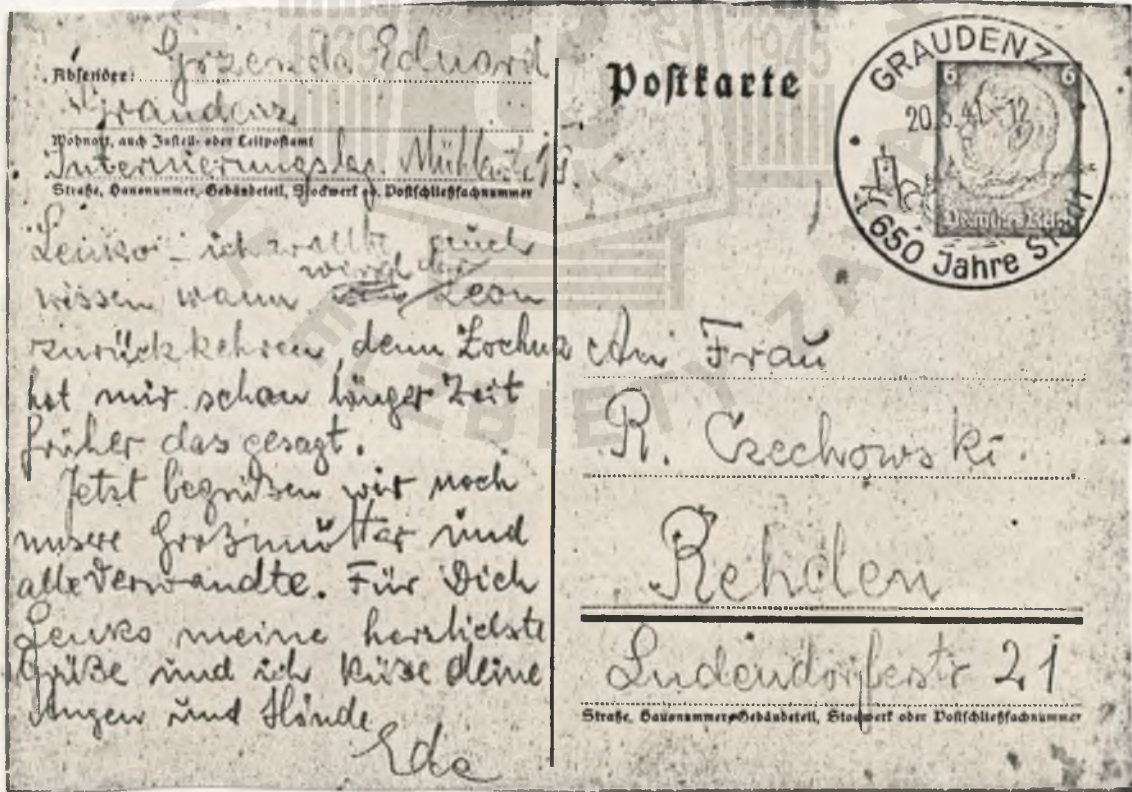 Absender: Grzenda Eduard
Graudenz
Wohnort, auch Zustell- oder Leitpostamt
Internierungslag. Mühlenstr.
Straße, Hausnummer, Gebäudeteil, Stockwerk od. Postschließfachnummer
Lenko - ich wollte auch
wird der
wissen wann Leon
zurückkehren, denn Zochna
hat mir schon länger Zeit
früher das gesagt.
Jetzt begrüßen wir noch
unsere Großmutter und
alle Verwandte. Für Dich
Lenko meine herzlichste
Grüße und ich küße deine
Augen und Hände
Ede
Postkarte
GRAUDENZ
20.5.41.-12
650 Jahre Stadt
6 6
Deutsches Reich
An Frau
R. Czechowski.
Rehden
Ludendorfestr 21
Straße, Hausnummer, Gebäudeteil, Stockwerk oder Postschließfachnummer
1939 1945